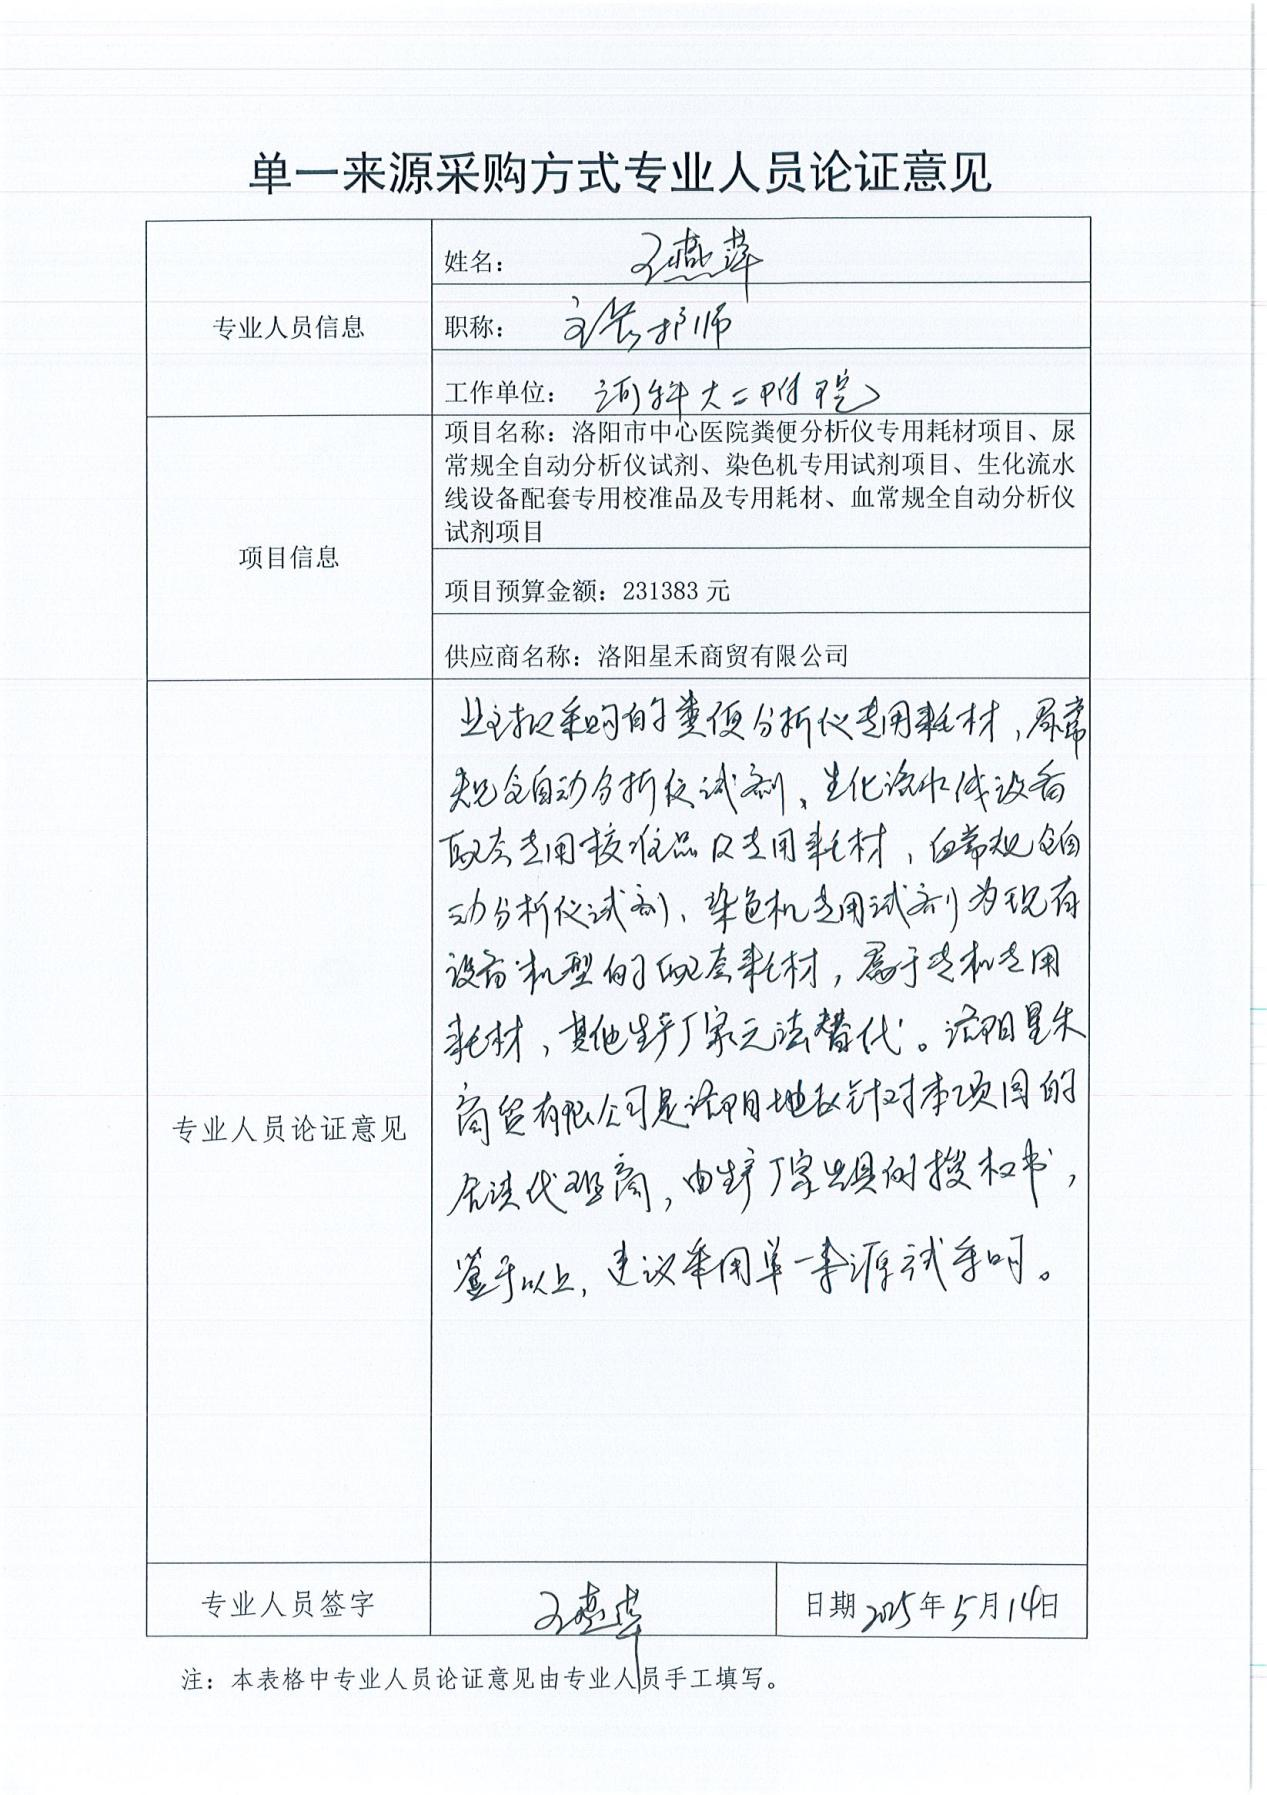 单一来源采购方式专业人员论证意见
专业人员信息
姓名：王燕萍
职称：主任技师
工作单位：河科大二附院
项目信息
项目名称：洛阳市中心医院粪便分析仪专用耗材项目、尿
常规全自动分析仪试剂、染色机专用试剂项目、生化流水
线设备配套专用校准品及专用耗材、血常规全自动分析仪
试剂项目
项目预算金额：231383 元
供应商名称：洛阳星禾商贸有限公司
专业人员论证意见
业主拟采购的粪便分析仪专用耗材，尿常
规全自动分析仪试剂、生化流水线设备
配套专用校准品及专用耗材，血常规全自
动分析仪试剂、染色机专用试剂为现有
设备机型的配套耗材，属于专机专用
耗材，其他生产厂家无法替代。洛阳星禾
商贸有限公司是洛阳地区针对本项目的
代理商，由生产厂家出具的授权书，
鉴于以上，建议采用单一来源方式采购。
专业人员签字
王燕萍
日期 2025年5月14日
注：本表格中专业人员论证意见由专业人员手工填写。